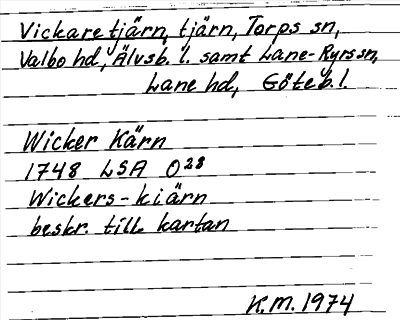 Vickaretjärn, tjärn, Torps sn,
Valbo hd, Älvsb. l. samt Lane-Ryrs sn,
Lane hd, Göteb. l.
Wicker Kärn
1748 LSA O28
Wickers-kiärn
beskr. till kartan
K.M. 1974